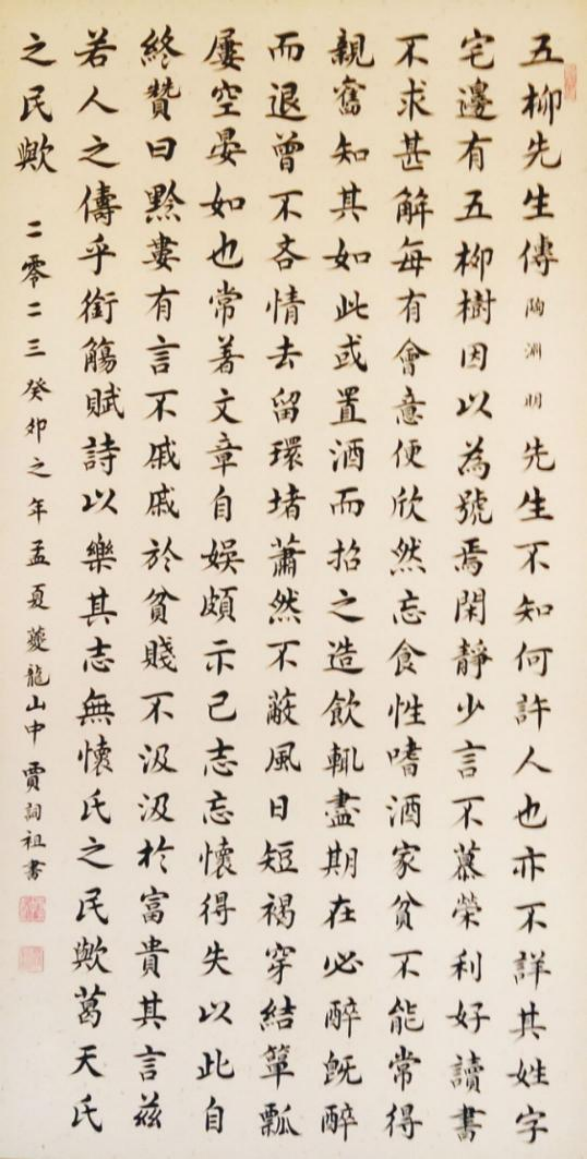 五柳先生傳陶淵明先生不知何許人也亦不詳其姓字
宅邊有五柳樹因以為號焉閑靜少言不慕榮利好讀書
不求甚解每有會意便欣然忘食性嗜酒家貧不能常得
親舊知其如此或置酒而招之造飲輒盡期在必醉既醉
而退曾不吝情去留環堵蕭然不蔽風日短褐穿結簞瓢
屢空晏如也常著文章自娛頗示己志忘懷得失以此自
終贊曰黔婁有言不戚戚於貧賤不汲汲於富貴其言茲
若人之儔乎銜觴賦詩以樂其志無懷氏之民歟葛天氏
之民歟 二零二三癸卯之年孟夏夔龍山中賈詞祖書